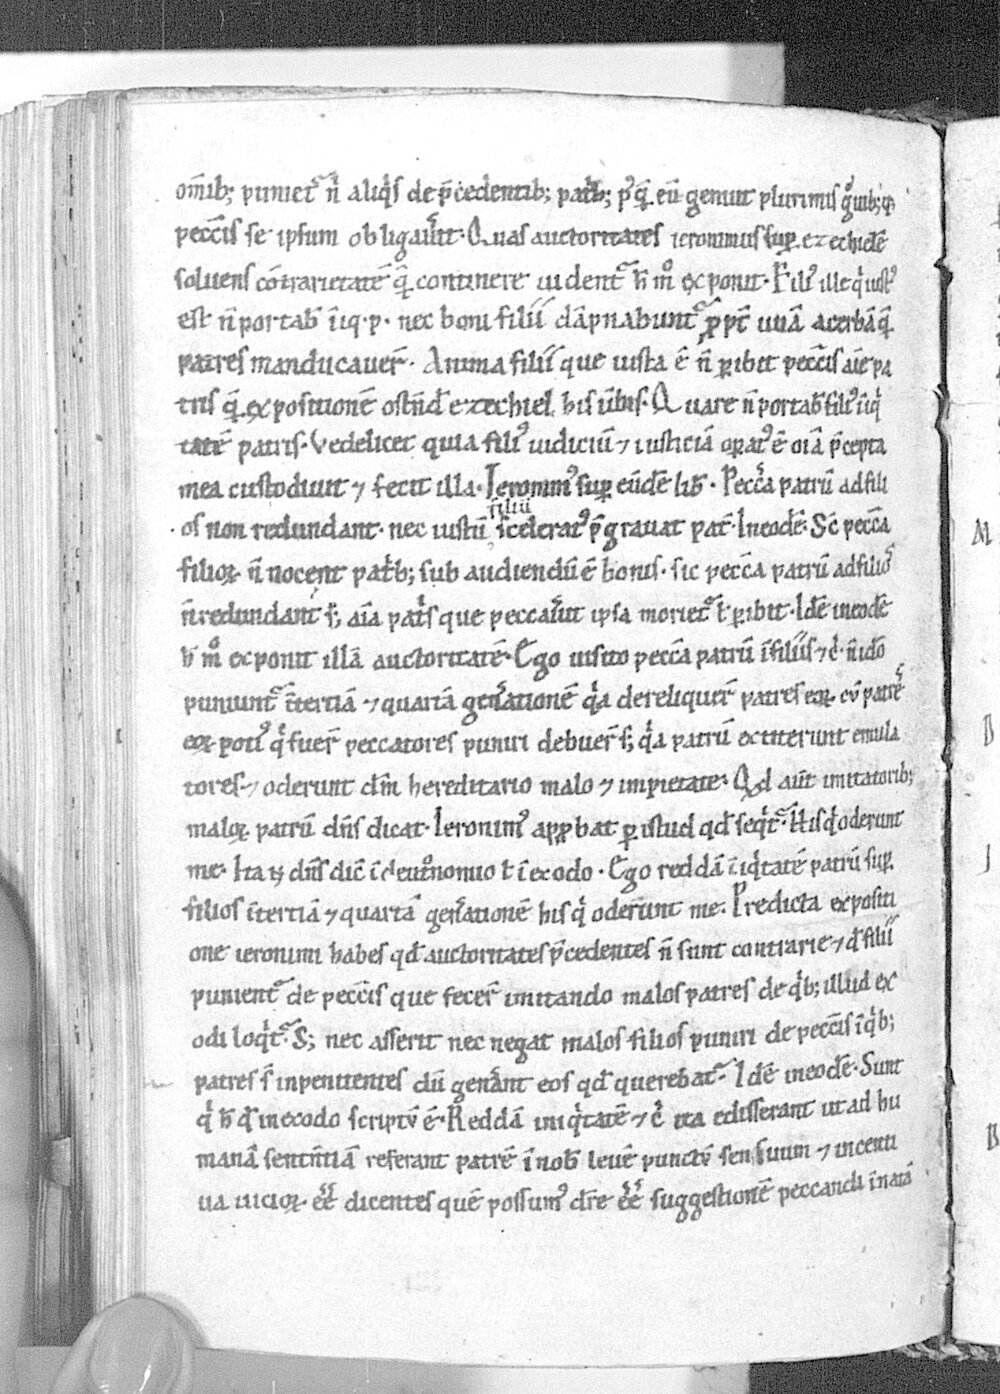 om̄ib; puniet᷑ n̄ aliq̇s de p̄cedentib; patrib; pꝰq̄ eū genuit plurimis gͣuib; 
peccīs se ipsum obligaūit. Quas auctoritates ieronimus sup̱ ezechielē
soluens cōtrarietatē q̄ continere uident᷑ h̄ mͦ exponit. Filiꝰ ille q̇ iustꝰ
est n̄ portab̄ īiq.p. nec boni filii dāpnabunt᷑ ꝓpt̄ uuā acerbā q̄
patres manducauer̄. Anima filii que iusta ē n̄ ꝑibit pecc̄is aīe pa
tris q̄ expositionē ostn̄d̄ ezechiel his ūbis. Quare n̄ portab̄ filiꝰ īiq̇
tatē patris. Vedelicet quia filiꝰ iudiciū ⁊ iusticiā oꝑatꝰ ē oīa p̄cepta
mea custodiuit ⁊ fecit illa. Ieronimꝰ sup̱ eūdē lib̄. Pecc̄a patrū ad fili
os non redundant. nec iustū filiū sceleratꝰ p̄grauat pat̄. In eodē. Sic pecc̄a
filioꝝ n̄ nocent patib; sub audiendū ē bonis. sic pecc̄a patrū ad filios
n̄ redundant s; aīa pat̄s que peccaūit ipsa moriet᷑ ł ꝑibit. Idē in eodē
h̄ mͦ exponit illā auctoritatē. Ego uisito pecc̄a patrū ī filiis ⁊c̄. n̄ idō
puniunt᷑ ī tertiā ⁊ quartā gen̄ationē q̇a dereliquer̄ patres eoꝝ cū patres
eoꝝ potiꝰ q̇ fuer̄ peccatores puniri debuer̄ s; q̇a patrū extiterunt emula
tores ⁊ oderunt dm̄ hereditario malo ⁊ impietate. Qd aūt imitatorib;
maloꝝ patrū dn̄s dicat. Ieronimꝰ apꝓbat ꝑ istud qd̄ seq̇t᷑. His q̇ oderunt
me. Ita ⁊ dn̄s dic̄ ī deut̄onomio ł ī exodo. Ego reddā īiq̇tatē patrū sup̱
filios ī tertiā ⁊ quartā gen̄ationē his q̇ oderunt me. Predicta expositi
one ieronimi habes qd̄ auctoritates p̄cedentes n̄ sunt contrarie ⁊ qd̄ filii
punient᷑ de pecc̄is que fecer̄ imitando malos patres de q̇b; illud ex
odi loq̇t᷑. S; nec asserit nec negat malos filios puniri de pecc̄is ī q̇b;
patres s̄ inpenitentes dū gen̄ant eos qd̄ querebat᷑. Idē in eodē. Sunt
q̇ h̄ qd̄ in exodo scriptū ē. Reddā iniq̇tatē ⁊c̄ ita edisserant ut ad hu
manā sentn̄tiā referant patrē ī nob̄ leuē punctū sensuum ⁊ incenti
ua uicioꝝ. eē dicentes quē possumꝰ dr̄e eē suggestionē peccandi ī natā